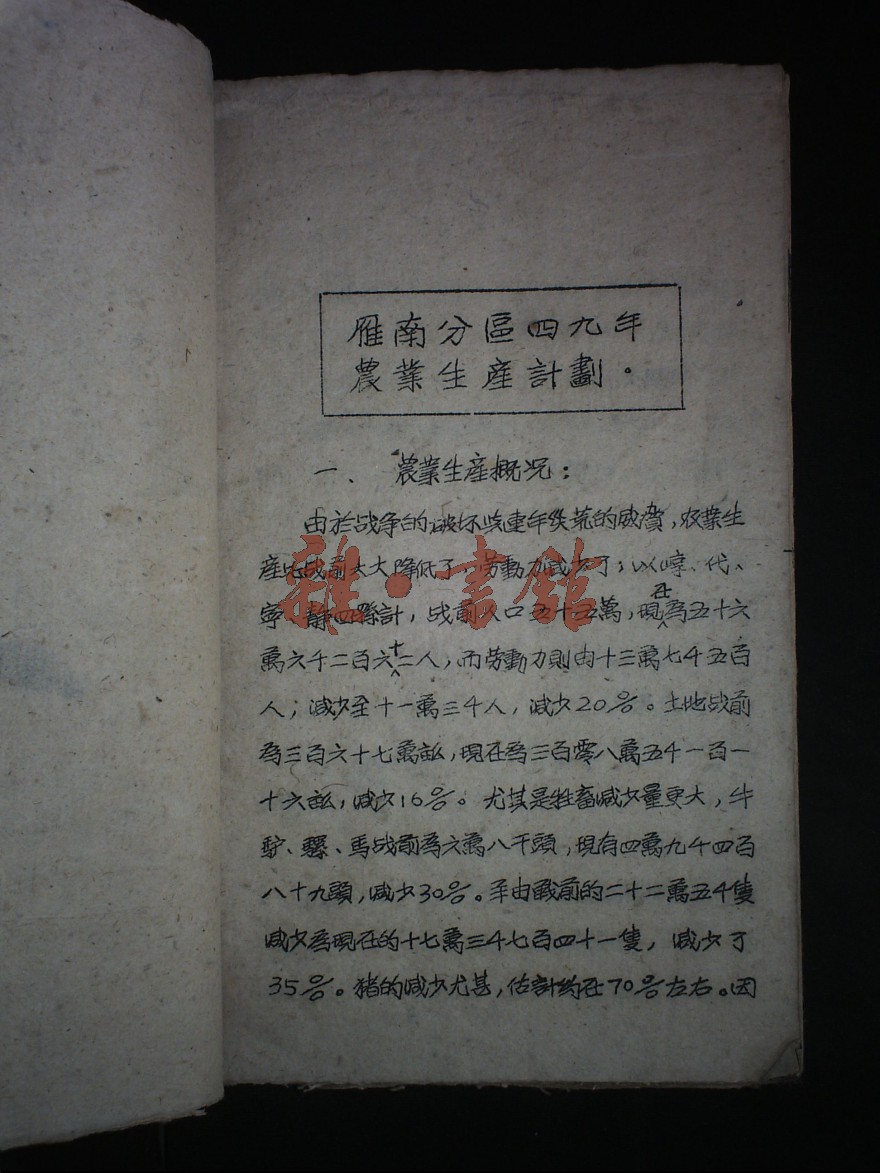 雁南分區四九年
農業生產計劃。
一、農業生產概况：
由於战争的破坏与連年灾荒的威脅，农業生
產比战前大大降低了，劳動力减少了；以崞、代、
寧、静四縣計，战前人口五十五萬，現在為五十六
萬六千二百六十二人，而劳動力則由十三萬七千五百
人；减少至十一萬三千人，减少20%。土地战前
為三百六十七萬畝，現在為三百零八萬五千一百一
十六畝，减少16%。尤其是牲畜减少量更大，牛
驴、騾、馬战前為六萬八千頭，現有四萬九千四百
八十九頭，减少30%。羊由戰前的二十二萬五千隻
减少為現在的十七萬三千七百四十一隻，减少了
35%。猪的减少尤甚，估計約在70%左右。因
雜·書館